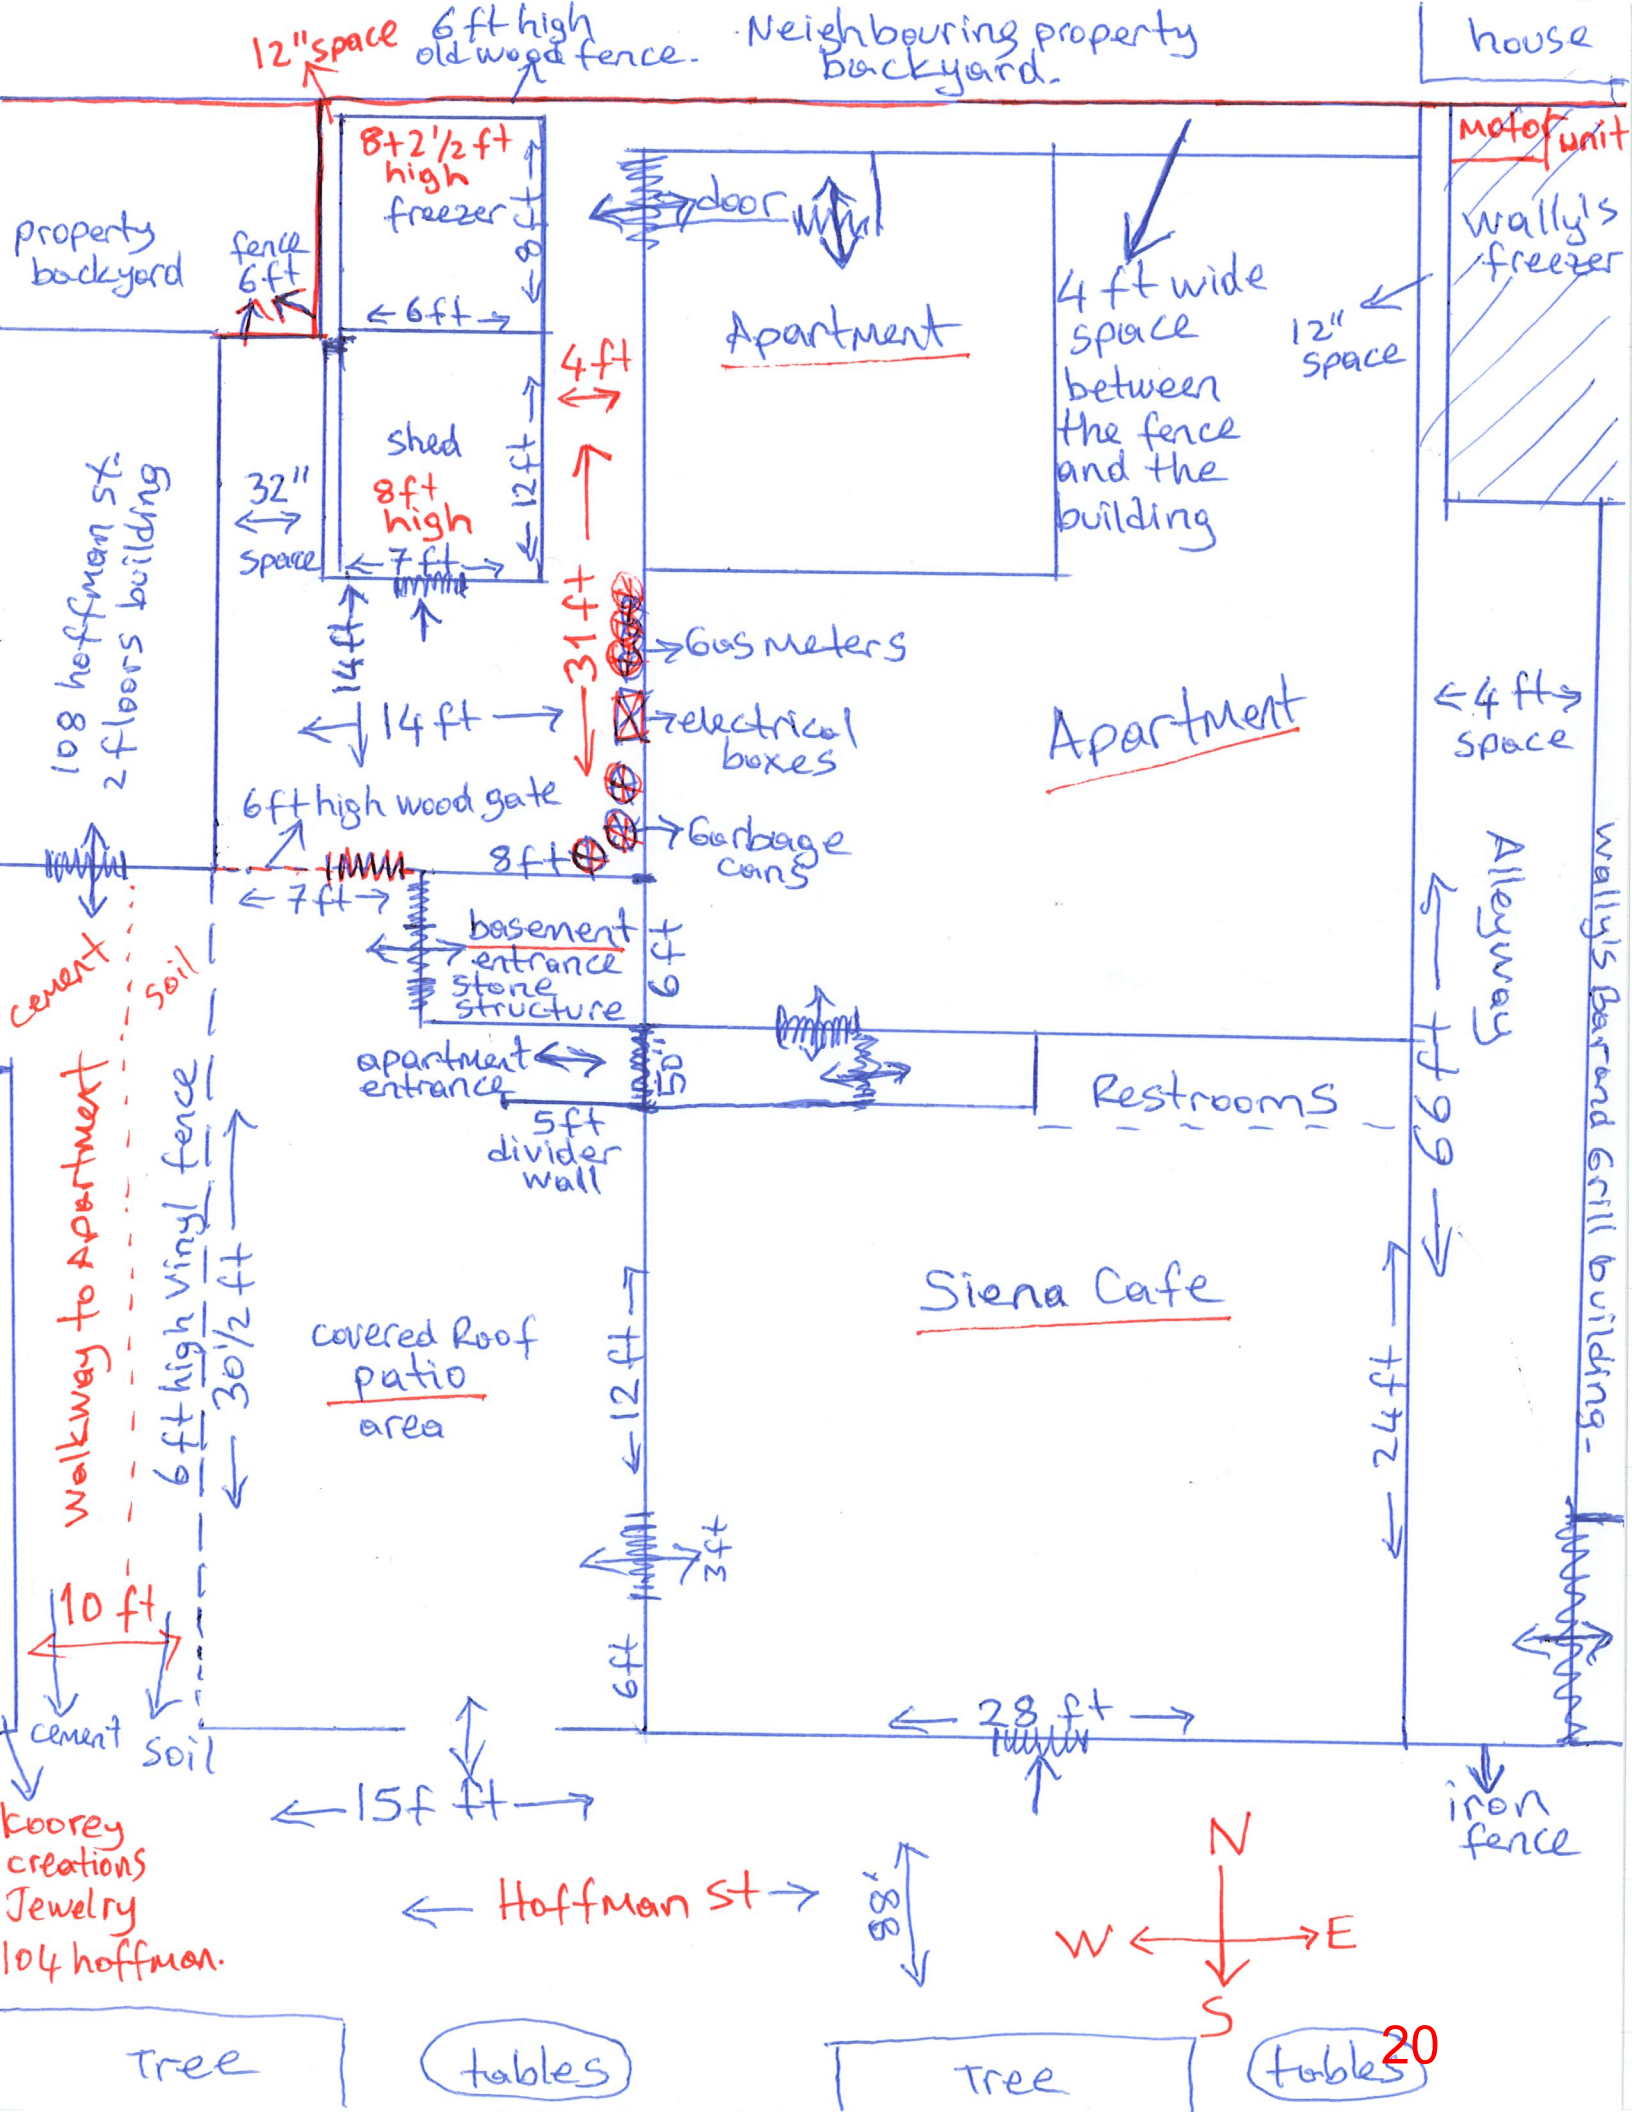 12" space
6 ft high
old wood fence.
Neighbouring property
backyard.
house
8+2 1/2 ft
high
freezer
8 ft
6 ft
property
backyard
fence
6 ft
door
Apartment
4 ft wide
space
between
the fence
and the
building
12"
space
Motor unit
Wally's
freezer
4 ft
shed
8 ft
high
12 ft
7 ft
32"
space
108 hoffman st.
2 floors building
14 ft
14 ft
31 ft
Gas meters
electrical
boxes
Garbage
cans
Apartment
4 ft
space
Alleyway
Wally's Bar and Grill building-
6 ft high wood gate
8 ft
7 ft
cement
soil
basement
entrance
stone
structure
6 ft
apartment
entrance
50"
5 ft
divider
wall
Restrooms
69 ft
Walkway to Apartment
6 ft high vinyl fence
30 1/2 ft
covered Roof
patio
area
12 ft
Siena Cafe
24 ft
3 ft
6 ft
10 ft
cement
soil
28 ft
15f ft
iron
fence
Koorey
creations
Jewelry
104 hoffman.
Hoffman St
88'
N
W
E
S
Tree
tables
Tree
tables
20